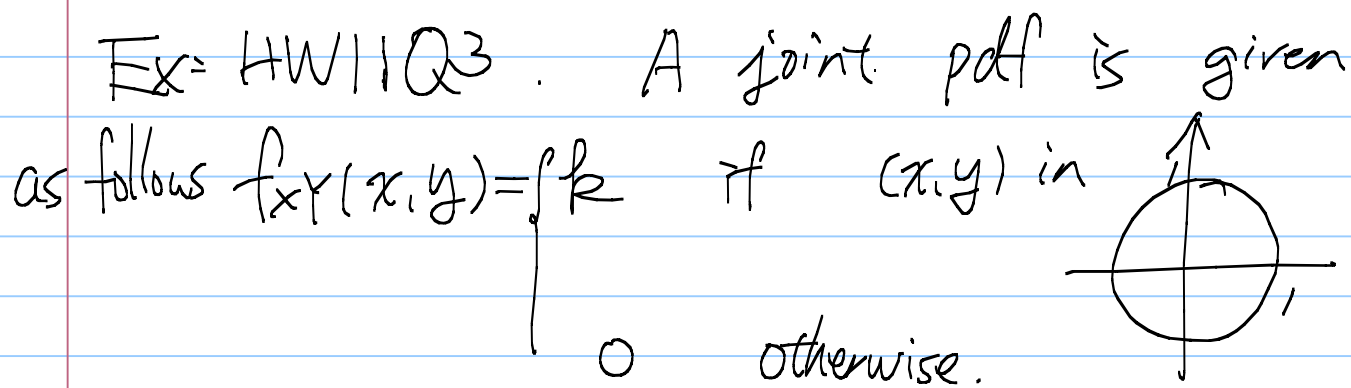 Ex: HW11Q3. A joint pdf is given
as follows f_XY(x,y)={k if (x,y) in
1
1
0 otherwise.